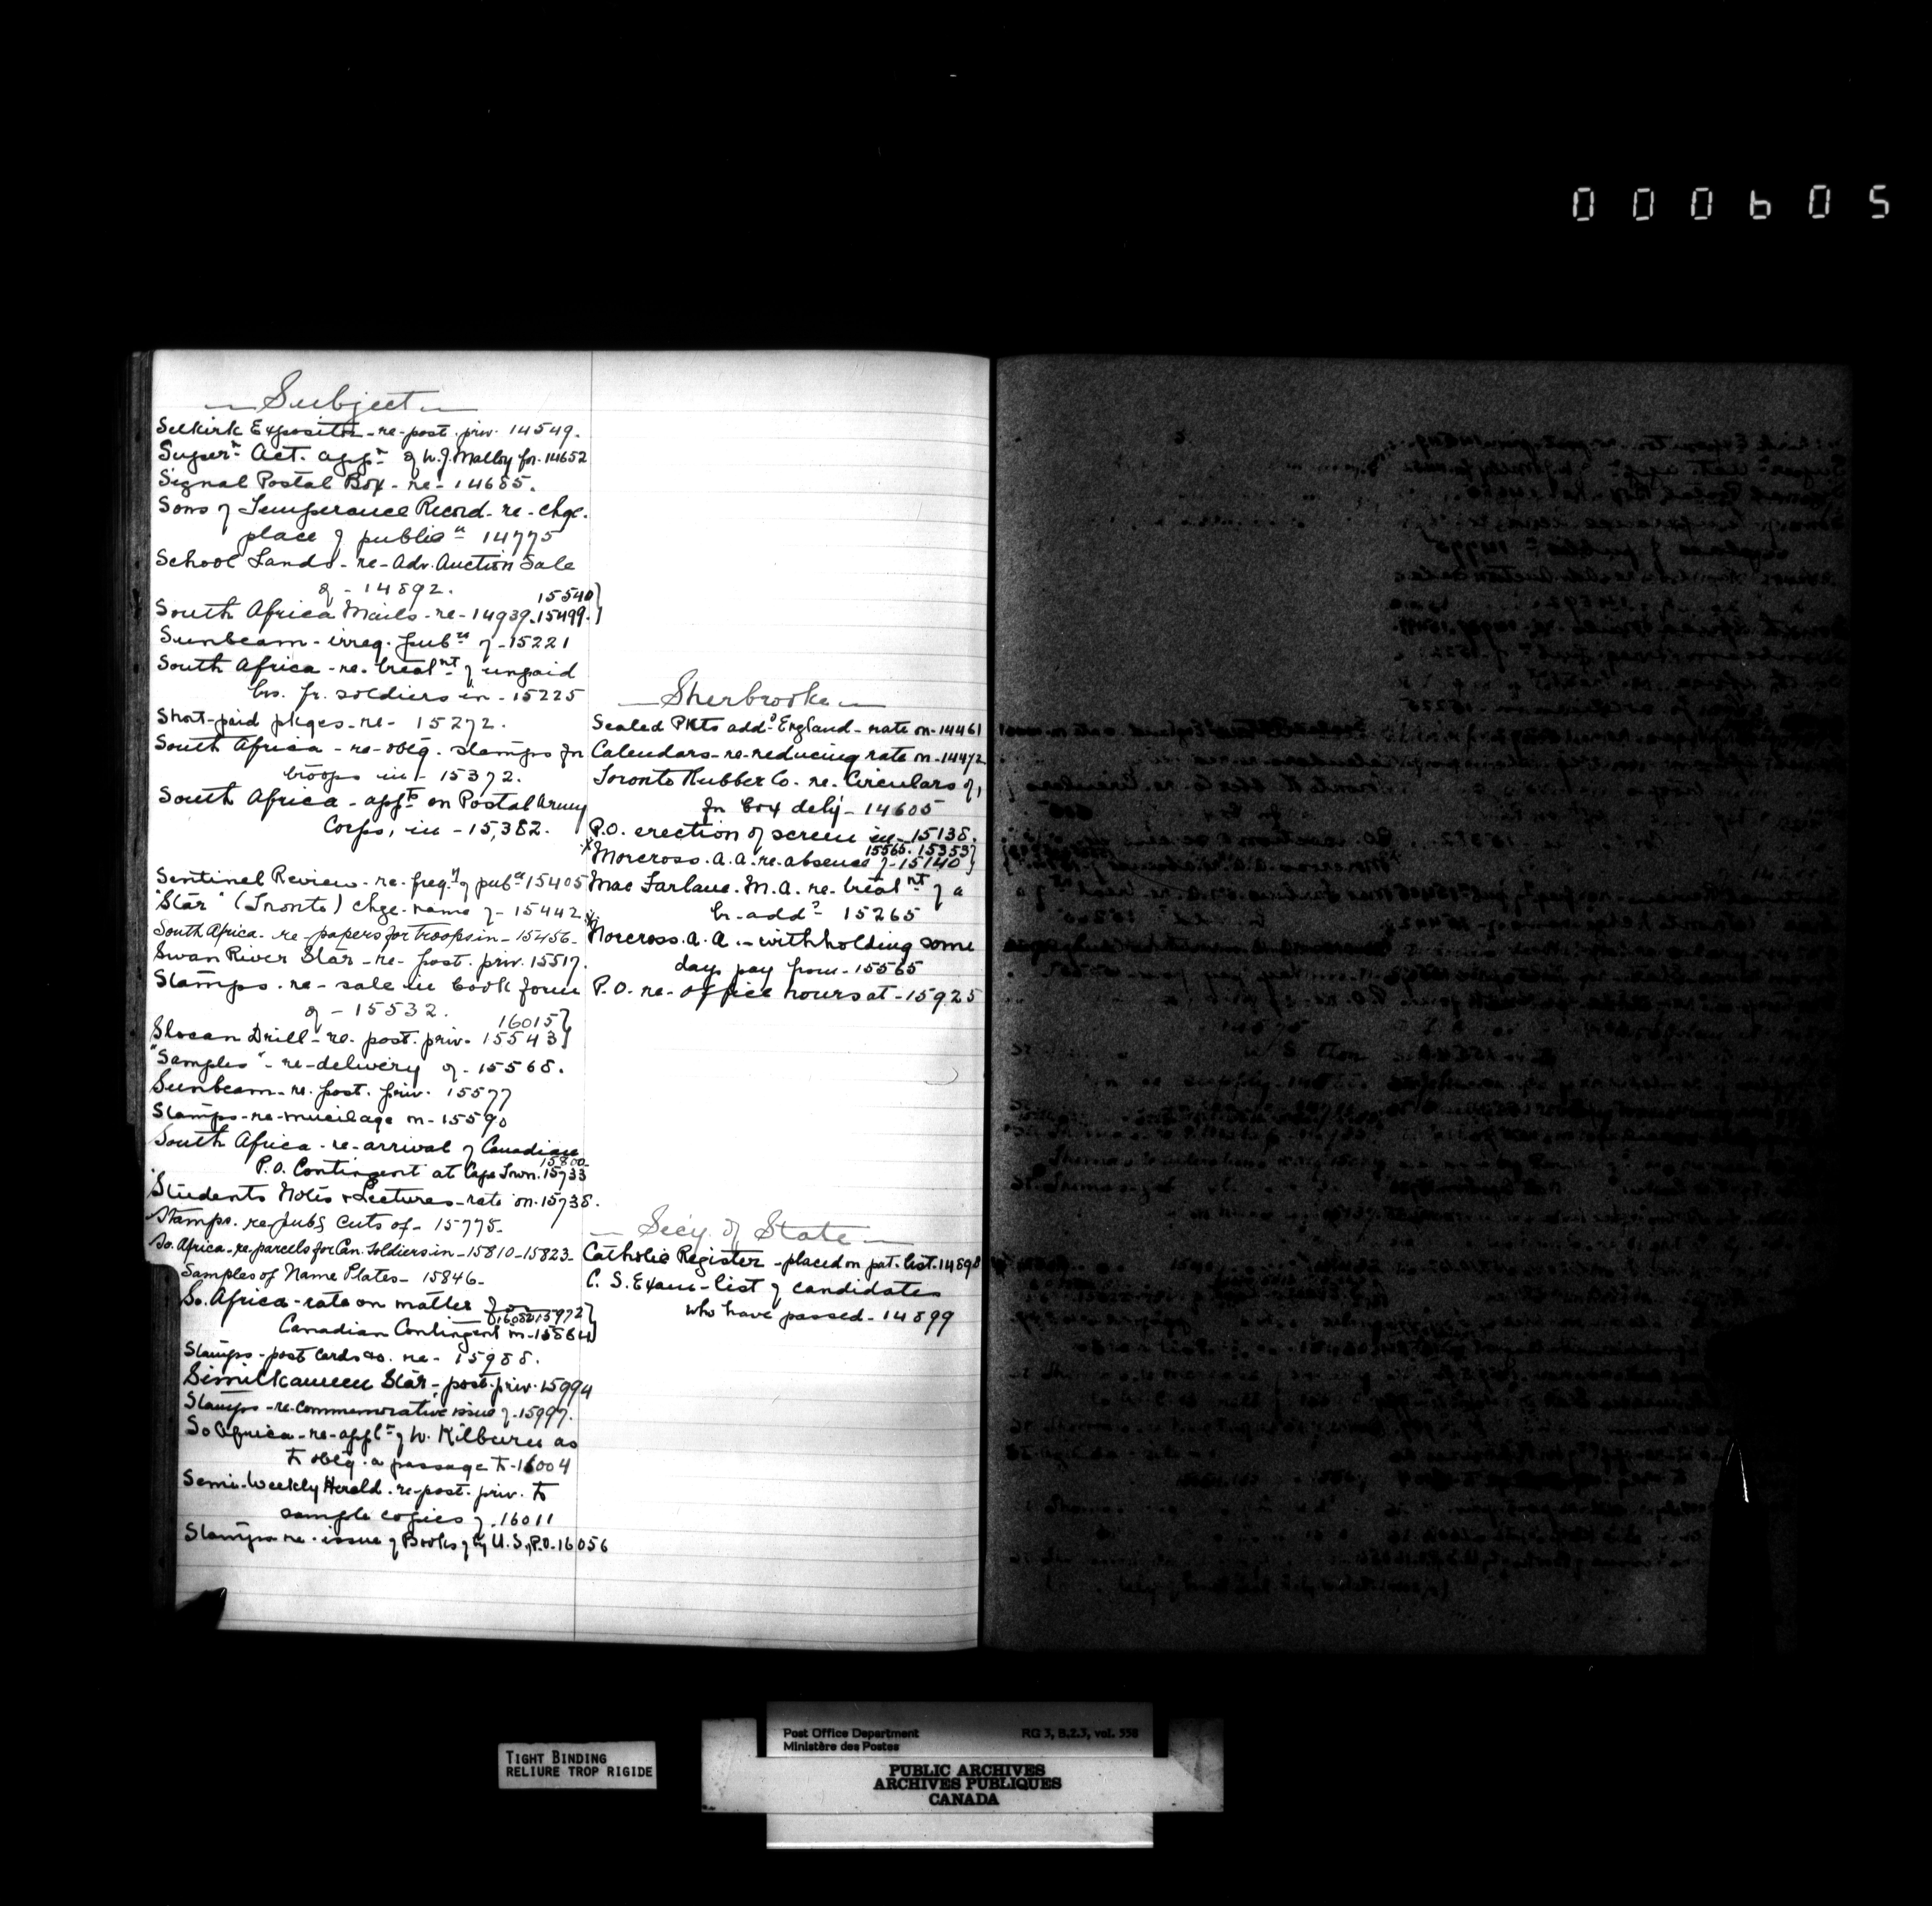 000605
Subject
Selkirk Expositor - re - post. priv. 14549.
Super.n Act. app.n of W. J. Malloy for. 14652
Signal Postal Box - re - 14685.
Sons of Temperance Record - re - chge.
place of public.n 14775
School Lands - re - Adv. Auction Sale
of - 14892.
15540}
South Africa Mails - re - 14939. 15499.}
Sunbeam - irreg. pub.n of - 15221
South Africa - re. treat.nt of unpaid
lrs. fr. soldiers in - 15225
Short-paid pkges - re - 15272.
South Africa - re - oblg. stamps for
troops in - 15372.
South Africa - app.ts on Postal Army
Corps, in - 15,382.
Sentinel Review - re - freq.y of pub.n 15405
"Star" (Toronto) chge. name of - 15442
South Africa - re - papers for troops in - 15456 -
Swan River Star - re - post. priv. 15517.
Stamps - re - sale in book form
of - 15532.
16015}
Slocan Drill - re. post. priv. 15543}
"Samples" - re - delivery of - 15568.
Sunbeam - re. post. priv. 15577
Stamps - re - mucilage on - 15590
South Africa - re - arrival of Canadian
15800 -
P.O. Contingent at Cape Town. 15733
Students Notes & Lectures - rate on. 15738.
Stamps. re pub.g Cuts of - 15775 -
So. Africa - re - parcels for Can. Soldiers in - 15810 - 15823 -
Samples of Name Plates - 15846 -
So. Africa - rate on matter for
16052 15972}
Canadian Contingent in - 15864}
Stamps - post Cards &c. re - 15988.
Similkameen Star - post. priv. 15994
Stamps - re - commemorative issue of - 15997.
So Africa - re - appl.n of W. Kilburn as
to oblg. a passage to - 16004
Semi-Weekly Herald - re - post. priv. to
sample copies of. 16011
Stamps - re - issue of Books of by U.S. P.O. - 16056
Sherbrooke
Sealed Pkts add.d England - rate on - 14461
Calendars - re - reducing rate on - 14472
Toronto Rubber Co. - re. Circulars of,
for box dely - 14605
P.O. erection of screen in - 15138.
15565. 15353}
x Norcross. A. A. re. absence of - 15140}
Mac Farlane. M. A. re. treat.nt of a
lr. add.d 15265
x Norcross. A. A. - withholding some
days pay from - 15565
P.O. re - office hours at - 15925
Secy. of State
Catholic Register - placed on pat. list. 14898
C. S. Exam - list of candidates
who have passed - 14899
TIGHT BINDING
RELIURE TROP RIGIDE
Post Office Department RG 3, B.2.3, vol. 558
Ministère des Postes
PUBLIC ARCHIVES
ARCHIVES PUBLIQUES
CANADA